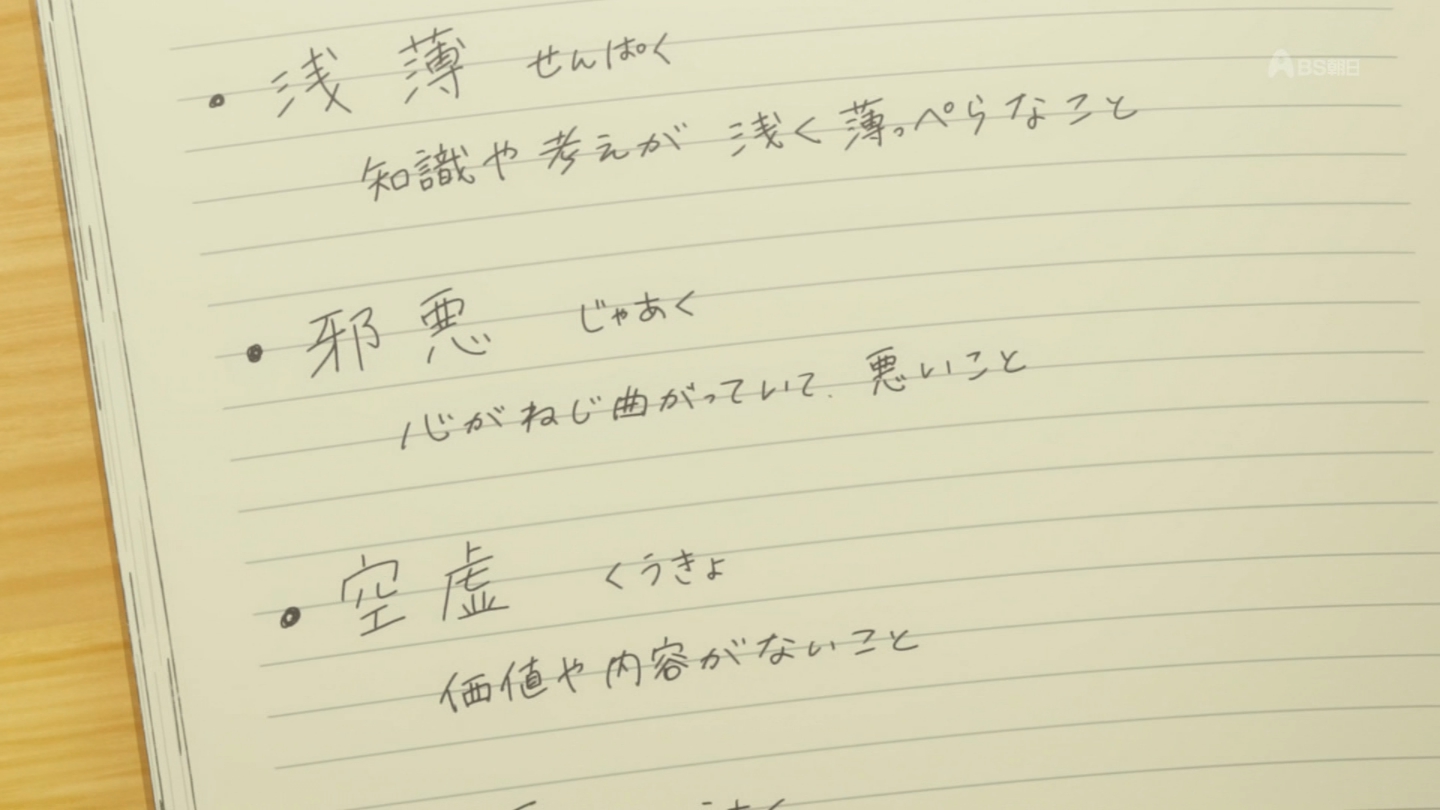 • 浅薄 せんぱく
知識や考えが 浅く薄っぺらなこと
• 邪悪 じゃあく
心がねじ曲がっていて、悪いこと
• 空虚 くうきょ
価値や内容がないこと
BS朝日